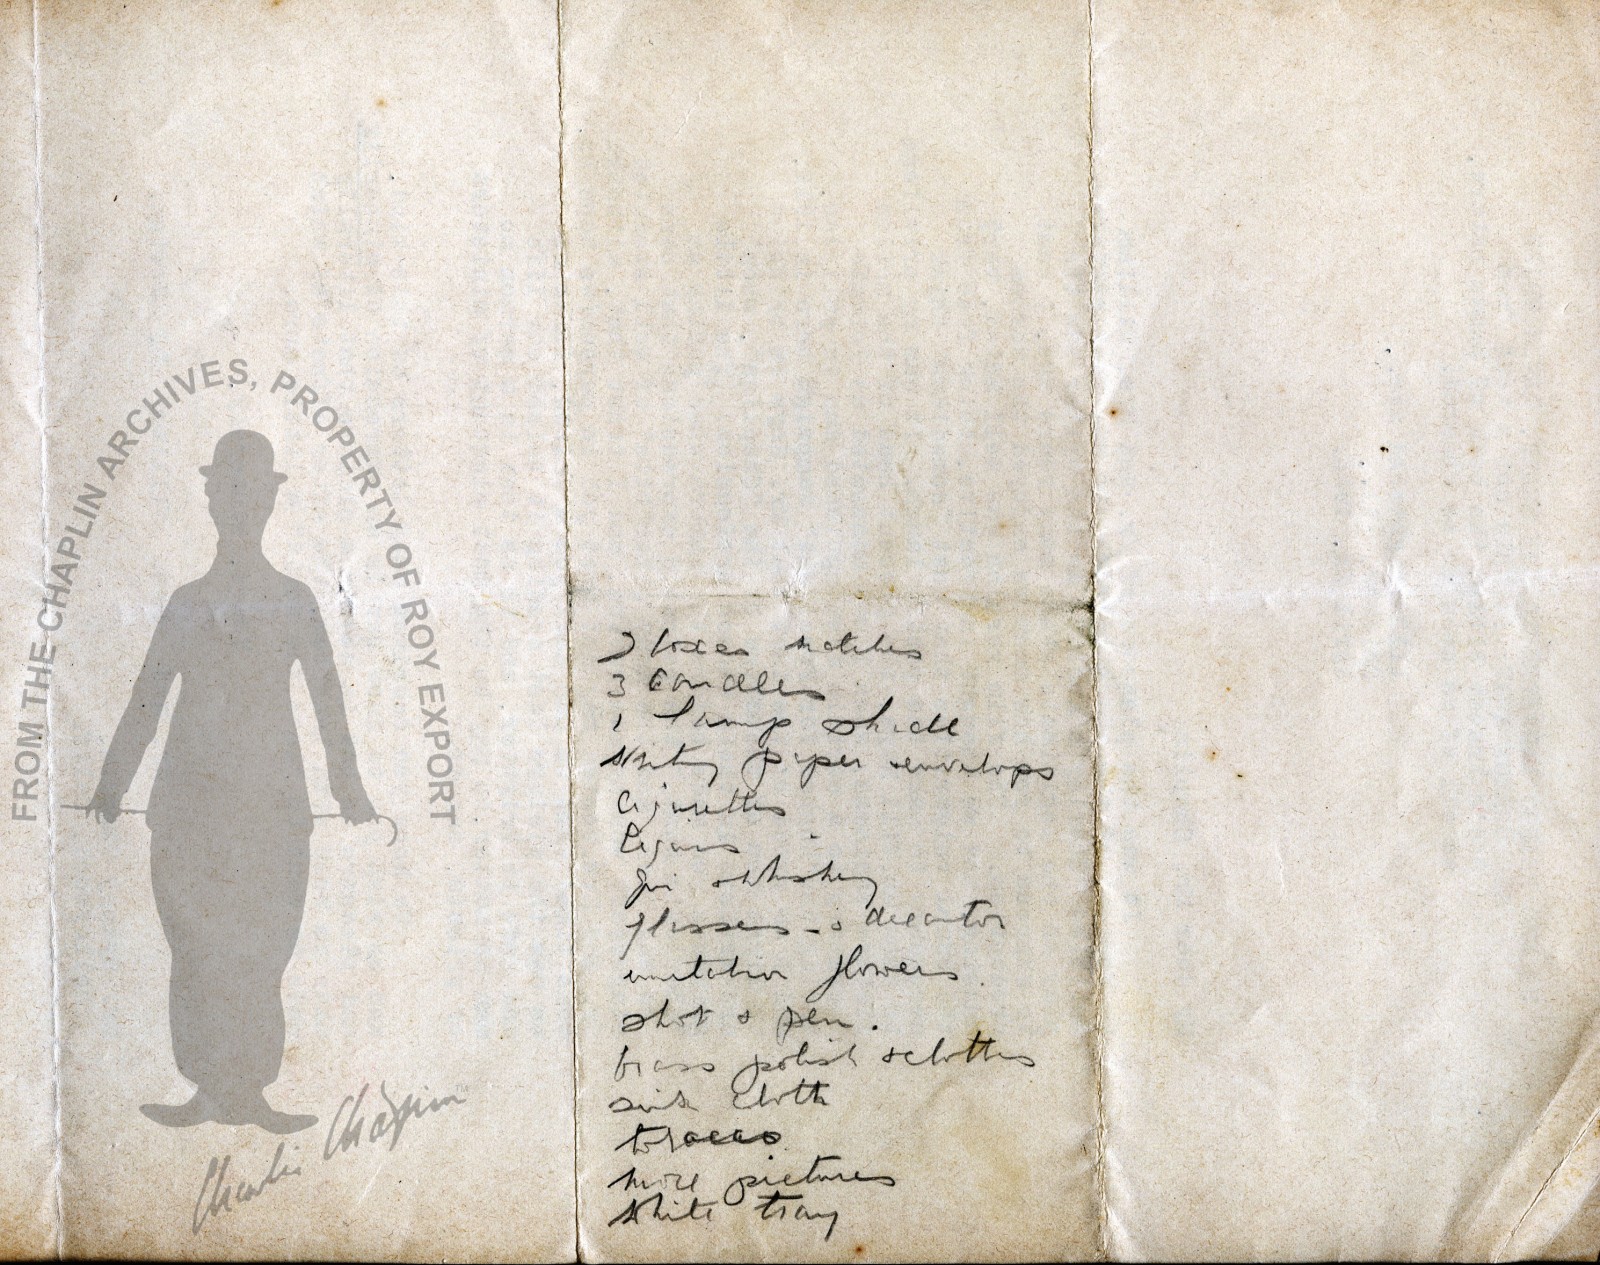 FROM THE CHAPLIN ARCHIVES, PROPERTY OF ROY EXPORT
Charlie Chaplin
2 boxes matches
3 Candles
1 lamp shade
Writing paper envelops
Cigarettes
Cigars
Gin & Whiskey
glasses - & decantor
imitation flowers
shot & pen.
brass polish & clothes
sink cloth
tobacco
more pictures
White tray